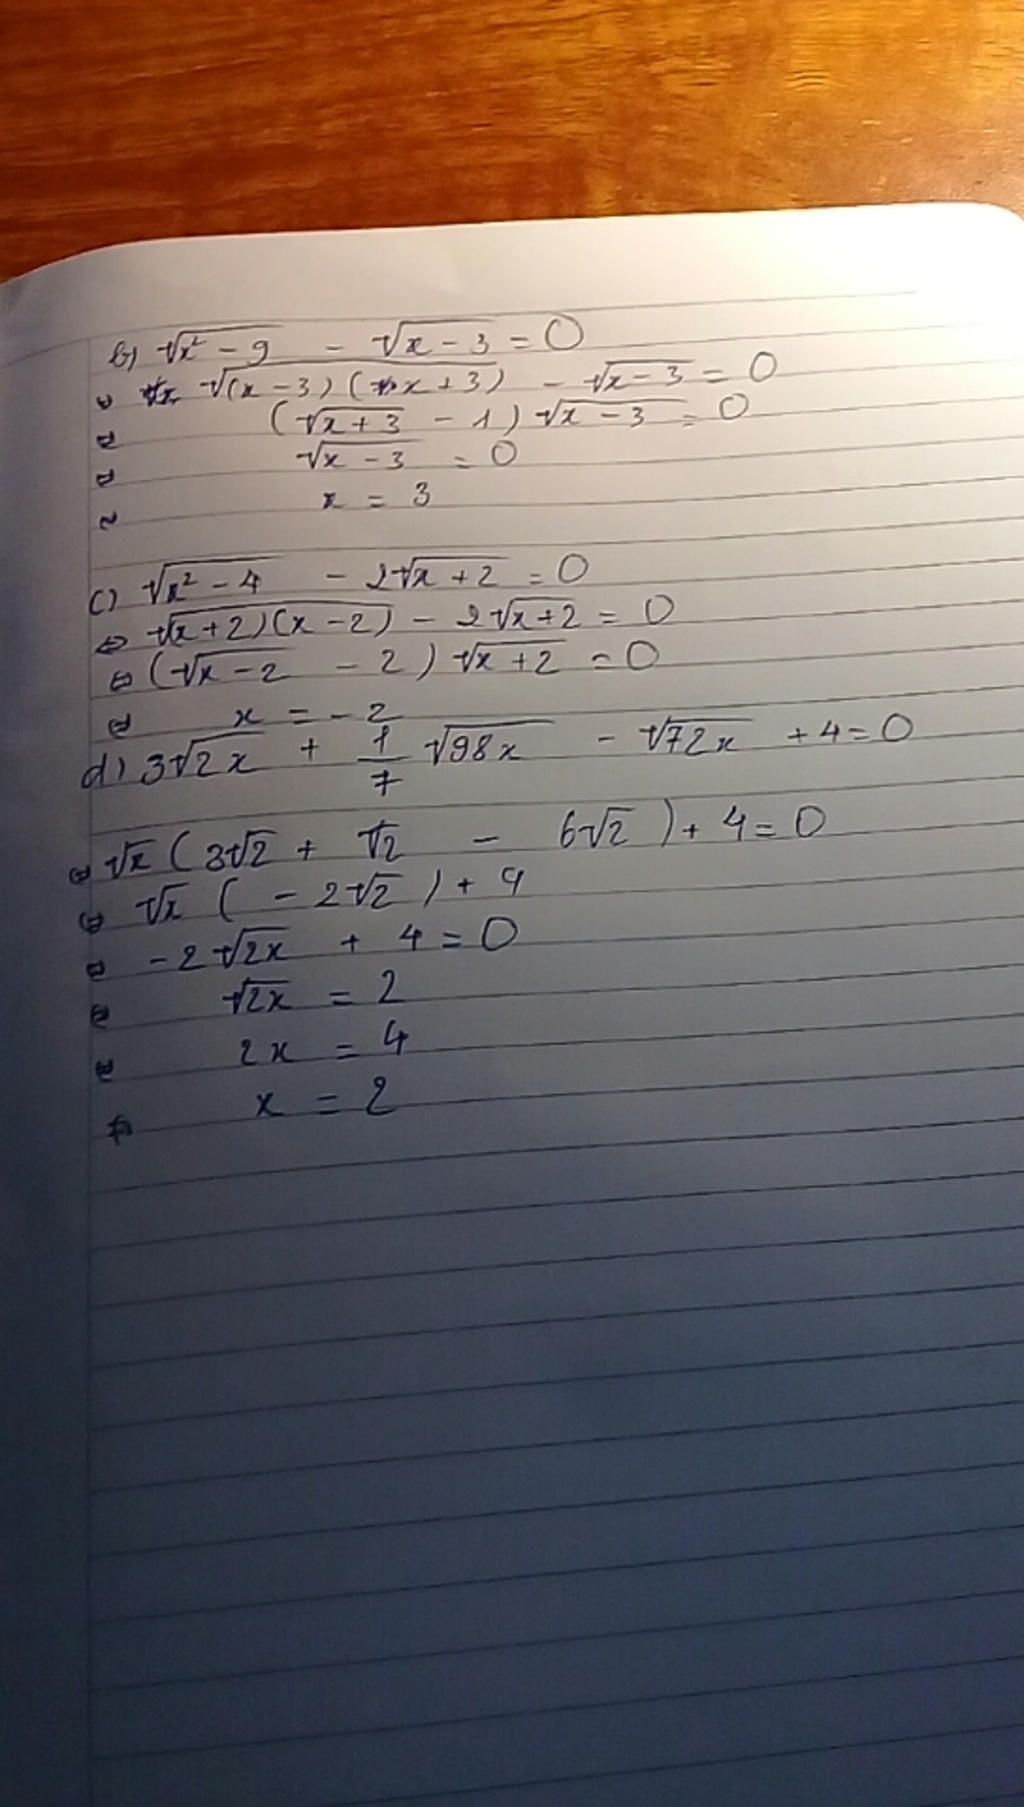 b) √(x² - 9) - √(x - 3) = 0
⇔ √((x - 3)(x + 3)) - √(x - 3) = 0
⇔ (√(x + 3) - 1) √(x - 3) = 0
⇔ √(x - 3) = 0
⇔ x = 3
c) √(x² - 4) - 2√(x + 2) = 0
⇔ √((x + 2)(x - 2)) - 2√(x + 2) = 0
⇔ (√(x - 2) - 2) √(x + 2) = 0
⇔ x = - 2
d) 3√(2x) + 1/7 √(98x) - √(72x) + 4 = 0
⇔ √x (3√2 + √2 - 6√2) + 4 = 0
⇔ √x (- 2√2) + 4
⇔ - 2√(2x) + 4 = 0
⇔ √(2x) = 2
⇔ 2x = 4
⇔ x = 2